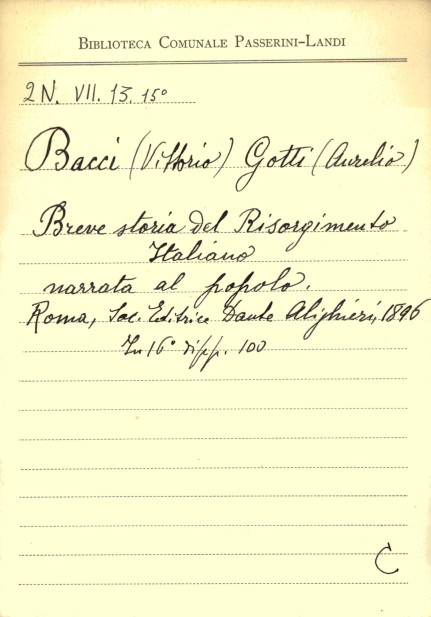 BIBLIOTECA COMUNALE PASSERINI-LANDI
2 N. VII. 13. 15°
Bacci (Vittorio) Gotti (Aurelio)
Breve storia del Risorgimento
Italiano
narrata al popolo.
Roma, Soc. Editrice Dante Alighieri, 1896
In 16° di pp. 100
C